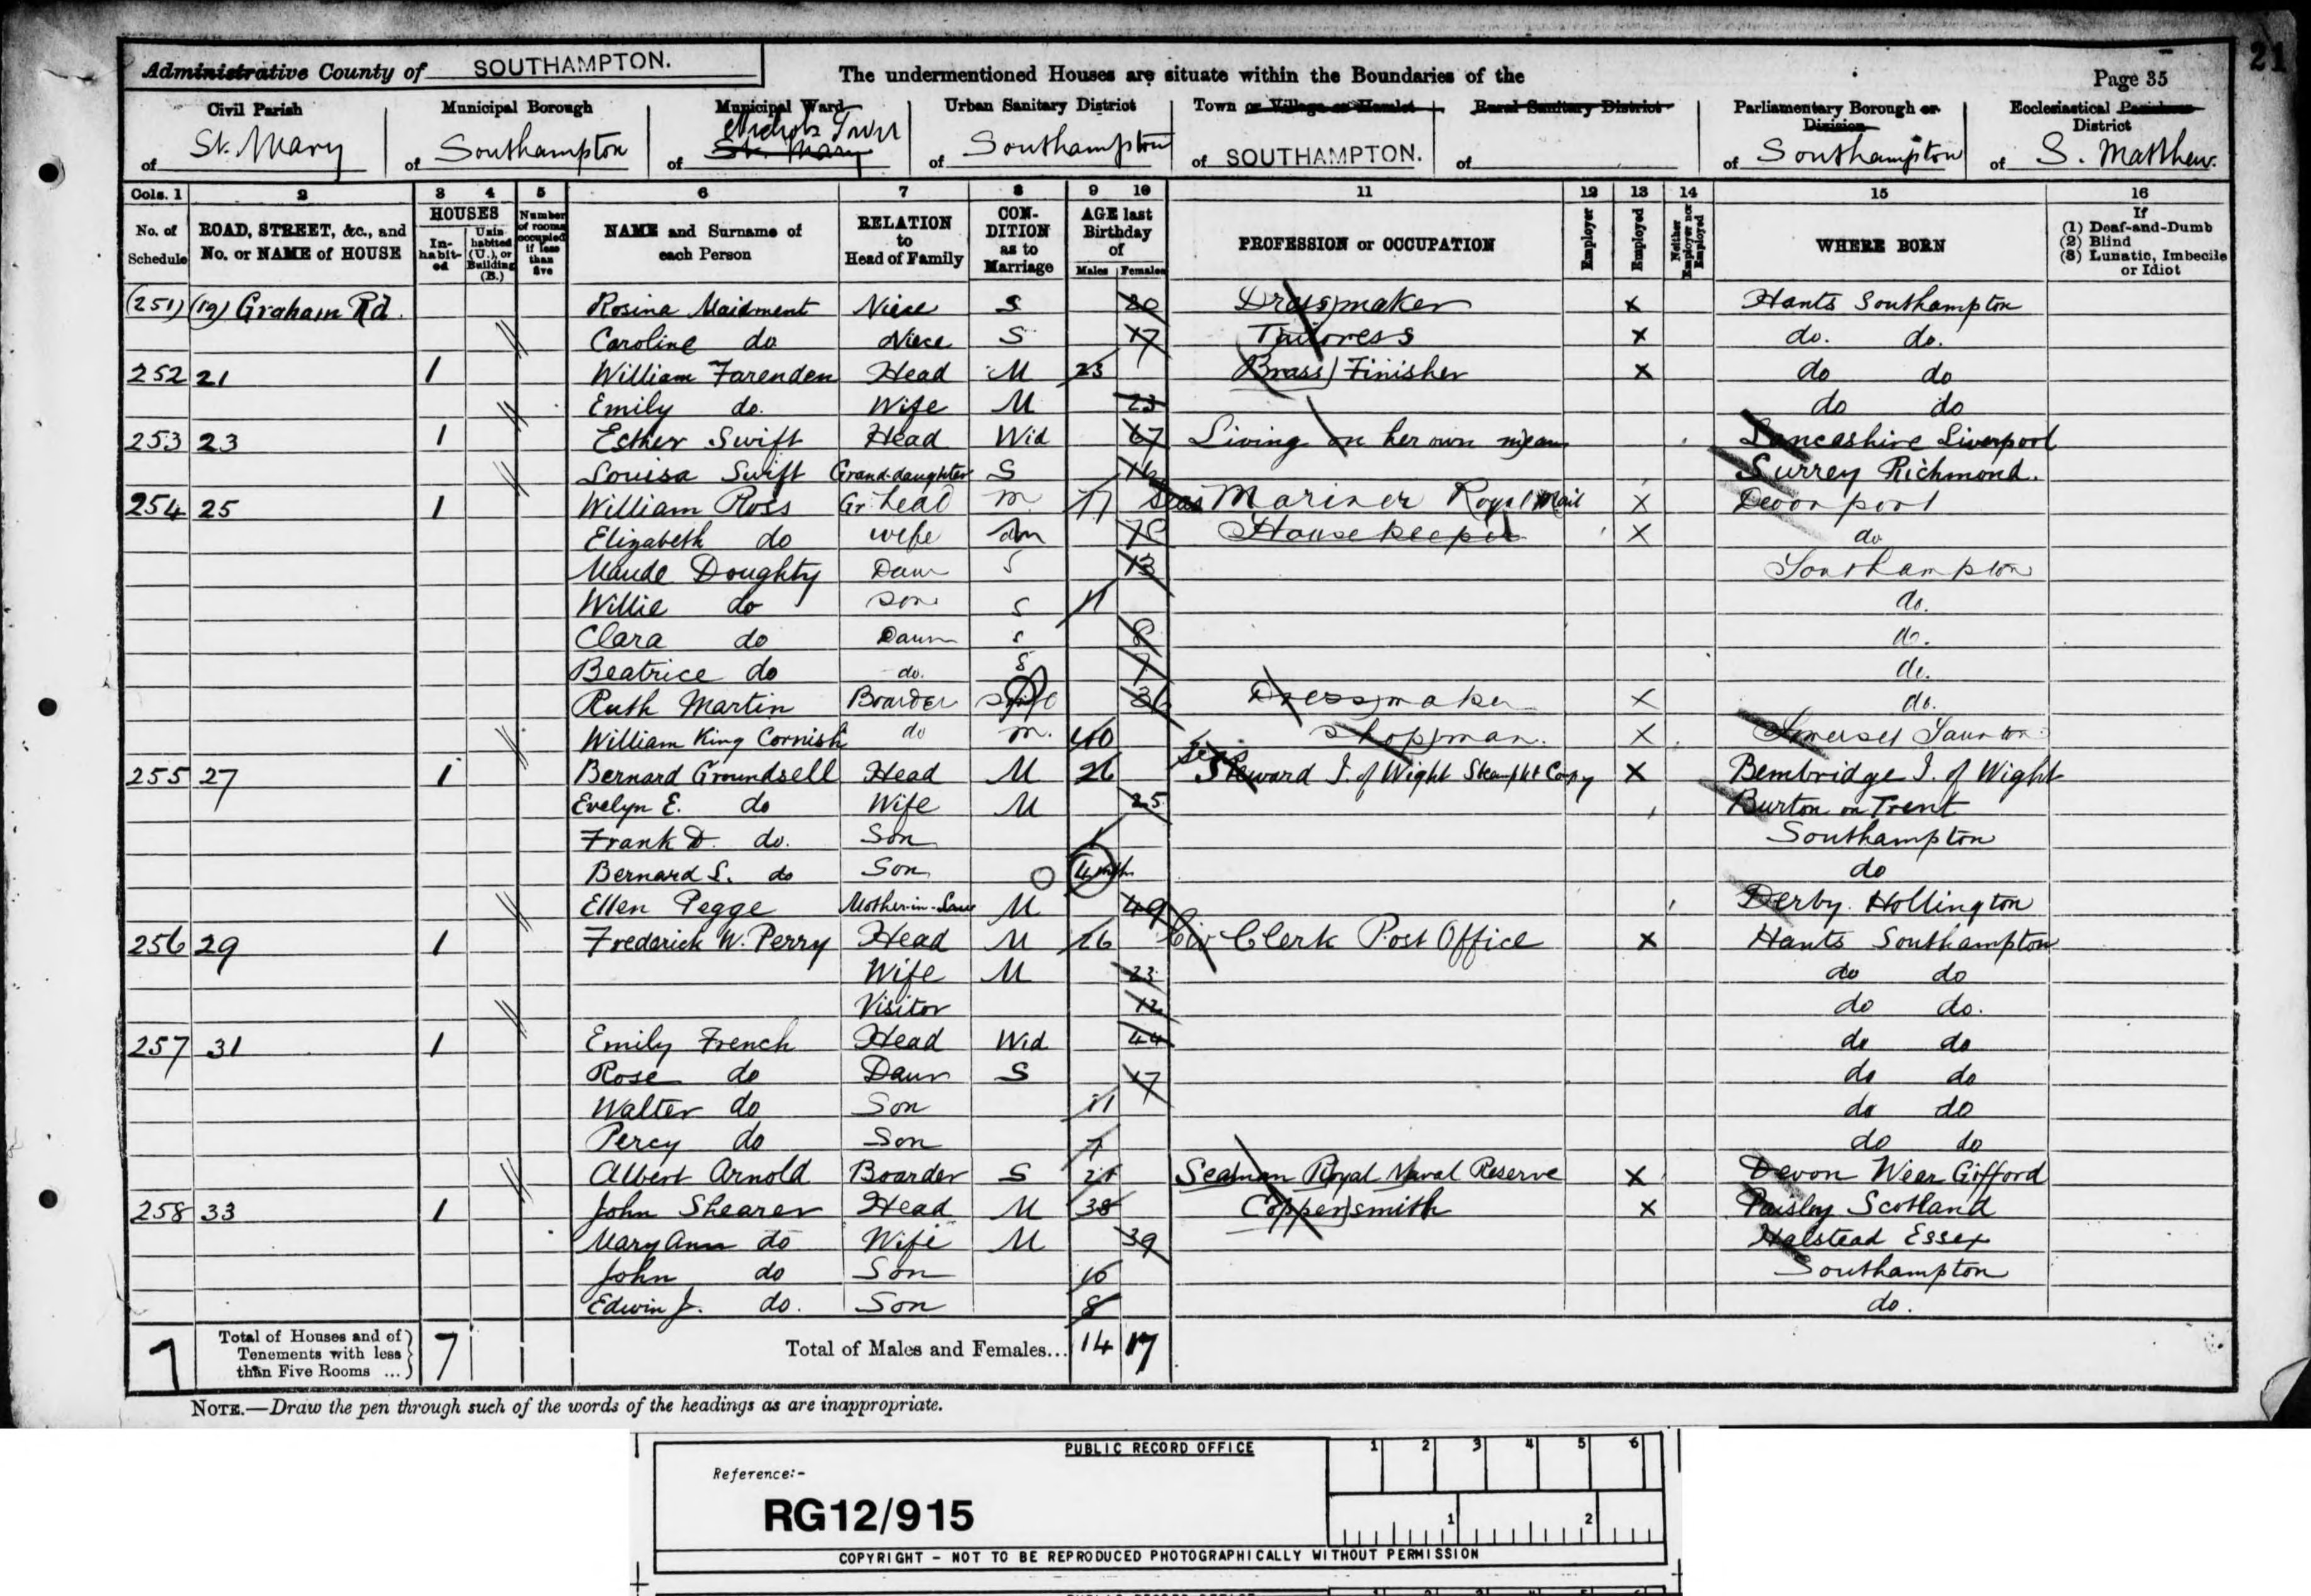 21
Administrative County of SOUTHAMPTON.
The undermentioned Houses are situate within the Boundaries of the
Page 35
Civil Parish of St. Mary
Municipal Borough of Southampton
Municipal Ward of Nichols Town St. Mary
Urban Sanitary District of Southampton
Town or Village or Hamlet of SOUTHAMPTON.
Rural Sanitary District of
Parliamentary Borough or Division of Southampton
Ecclesiastical Parish or District of S. Matthew.
Cols. 1 2 3 4 5 6 7 8 9 10 11 12 13 14 15 16
No. of Schedule
ROAD, STREET, &c., and No. or NAME of HOUSE
HOUSES
In-habit-ed
Unin habited (U.), or Building (B.)
Number of rooms occupied if less than five
NAME and Surname of each Person
RELATION to Head of Family
CON-DITION as to Marriage
AGE last Birthday of
Males Females
PROFESSION or OCCUPATION
Employer
Employed
Neither Employer nor Employed
WHERE BORN
If
(1) Deaf-and-Dumb
(2) Blind
(3) Lunatic, Imbecile or Idiot
(251) (19) Graham Rd. Rosina Maidment Niece S 20 Dressmaker X Hants Southampton
Caroline do Niece S 17 Tailoress X do. do.
252 21 1 William Farenden Head M 23 Brass Finisher X do do
Emily do. Wife M 23 do do
253 23 1 Esther Swift Head Wid 67 Living on her own means Lancashire Liverpool
Louisa Swift Grand-daughter S 16 Surrey Richmond.
254 25 1 William Ross Gr. head m 77 Mariner Royal Mail X Devonport
Elizabeth do wife m Housekeeper X do
Maude Doughty Daur S 13 Southampton
Willie do son S 11 do.
Clara do Daur s do.
Beatrice do do. S 7 do.
Ruth Martin Boarder Dressmaker X do.
William King Cornish do m. 40 Shopman. X Somerset Taunton
255 27 1 Bernard Groundsell Head M 26 Steward I. of Wight Steampkt Copy X Bembridge I. of Wight
Evelyn E. do Wife M 25 Burton on Trent
Frank D. do. Son 1 Southampton
Bernard S. do Son 4 mth do
Ellen Pegge Mother-in-Law M 49 Derby Hollington
256 29 1 Frederick W. Perry Head M 26 Clerk Post Office X Hants Southampton
Wife M 23 do do
Visitor 12 do do.
257 31 1 Emily French Head Wid 44 do do
Rose do Daur S 17 do do
Walter do Son 11 do do
Percy do Son 7 do do
Albert Arnold Boarder S 21 Seaman Royal Naval Reserve X Devon Wear Gifford
258 33 1 John Shearer Head M 38 Coppersmith X Paisley Scotland
Mary Ann do Wife M 39 Halstead Essex
John do Son 10 Southampton
Edwin J. do. Son 8 do.
7 Total of Houses and of Tenements with less than Five Rooms ... 7 Total of Males and Females... 14 17
NOTE.—Draw the pen through such of the words of the headings as are inappropriate.
PUBLIC RECORD OFFICE
1 2 3 4 5 6
Reference:-
RG12/915
1 2
COPYRIGHT - NOT TO BE REPRODUCED PHOTOGRAPHICALLY WITHOUT PERMISSION